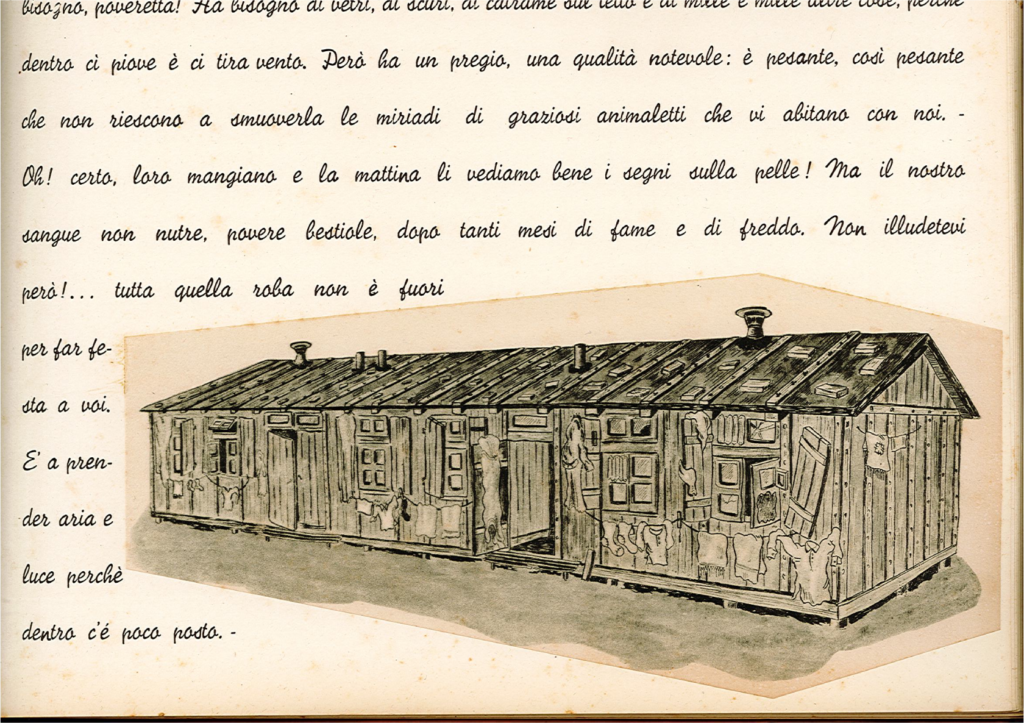 bisogno, poveretta! Ha bisogno di vetri, di scuri, di catrame sul tetto e di mille e mille altre cose, perchè
dentro ci piove è ci tira vento. Però ha un pregio, una qualità notevole: è pesante, così pesante
che non riescono a smuoverla le miriadi di graziosi animaletti che vi abitano con noi. -
Oh! certo, loro mangiano e la mattina li vediamo bene i segni sulla pelle! Ma il nostro
sangue non nutre, povere bestiole, dopo tanti mesi di fame e di freddo. Non illudetevi
però!... tutta quella roba non è fuori
per far fe-
sta a voi.
E' a pren-
der aria e
luce perchè
dentro c'é poco posto. -